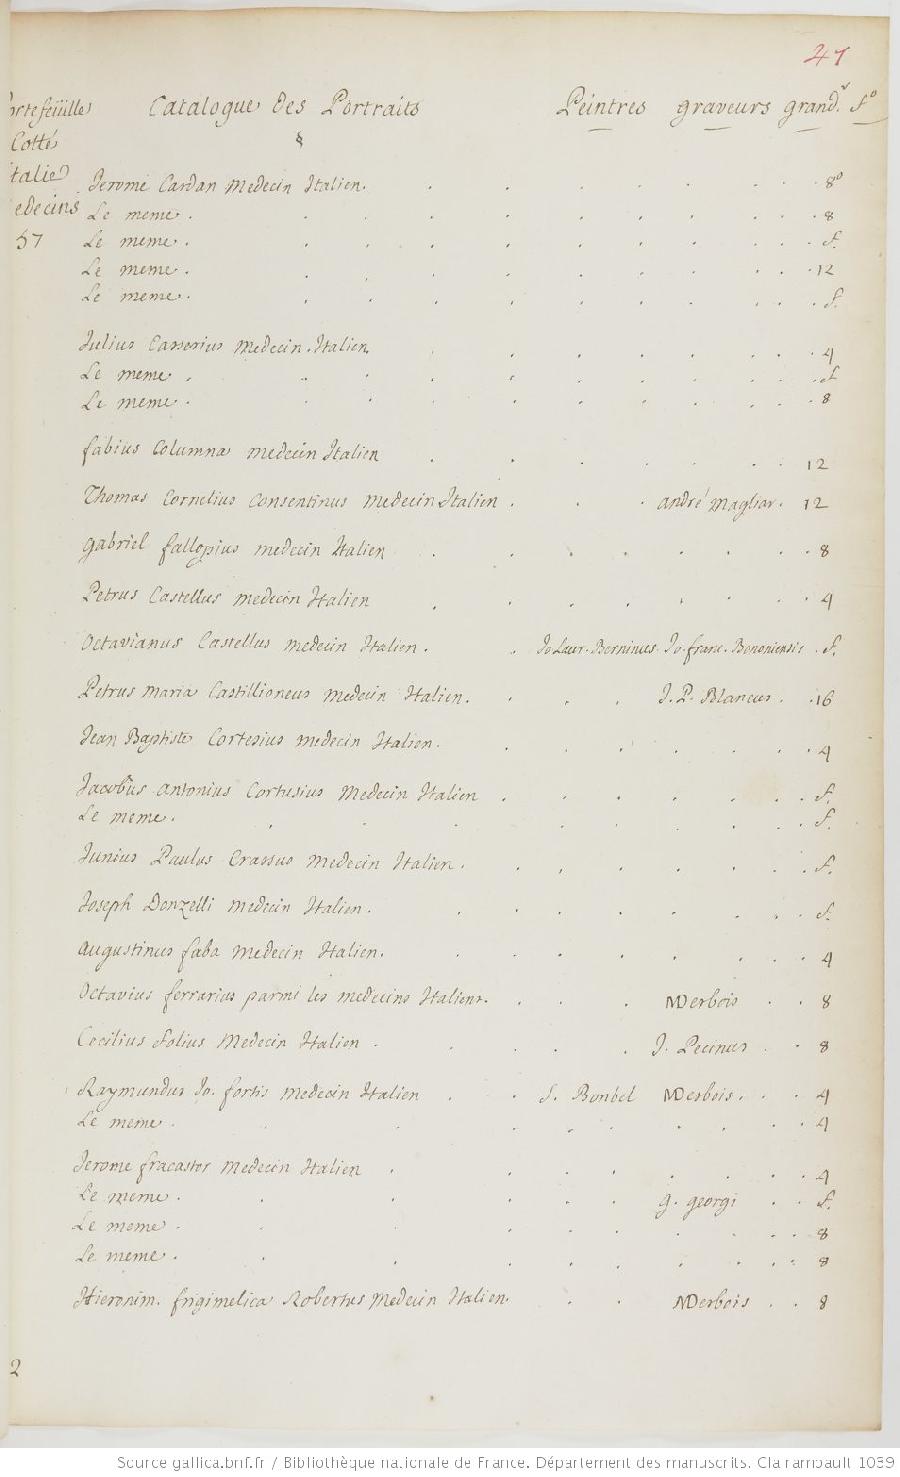 47
ortefeüille Catalogue des Portraits Peintres graveurs grandr fo
Cotté
talie
edecins
57
Jerome Cardan Medecin Italien. 8o
Le meme. 8
Le meme. f.
Le meme. 12
Le meme. f.
Julius Casserius Medecin Italien. 4
Le meme. f
Le meme. 8
fabius Columna medecin Italien 12
Thomas Cornelius Consentinus Medecin Italien. andré Magliar. 12
gabriel fallopius medecin Italien 8
Petrus Castellus medecin Italien 4
Octavianus Castellus medecin Italien. Jo Laur. Berninus. Jo. franc. Bononiensis. f.
Petrus maria Castillioneus medecin Italien. J. P. Blancus. 16
Jean Baptiste Cortesius medecin Italien. 4
Jacobus antonius Cortusius Medecin Italien f.
Le meme. f.
Junius Paulus Crassus medecin Italien. f.
Joseph Donzelli medecin Italien. f.
augustinus faba Medecin Italien. 4
Octavius ferrarius parmi les medecins Italiens. MDerbois 8
Cecilius folius Medecin Italien. J. Pecinus 8
Raymundus Jo. fortis medecin Italien J. Bonbel MDerbois. 4
Le meme. 4
Jerome fracastor Medecin Italien. 4
Le meme. g. georgi f.
Le meme. 8
Le meme. 8
Hieronim. frigimelica Robertus Medecin Italien. MDerbois 8
2
Source gallica.bnf.fr / Bibliothèque nationale de France. Département des manuscrits. Clairambault 1039